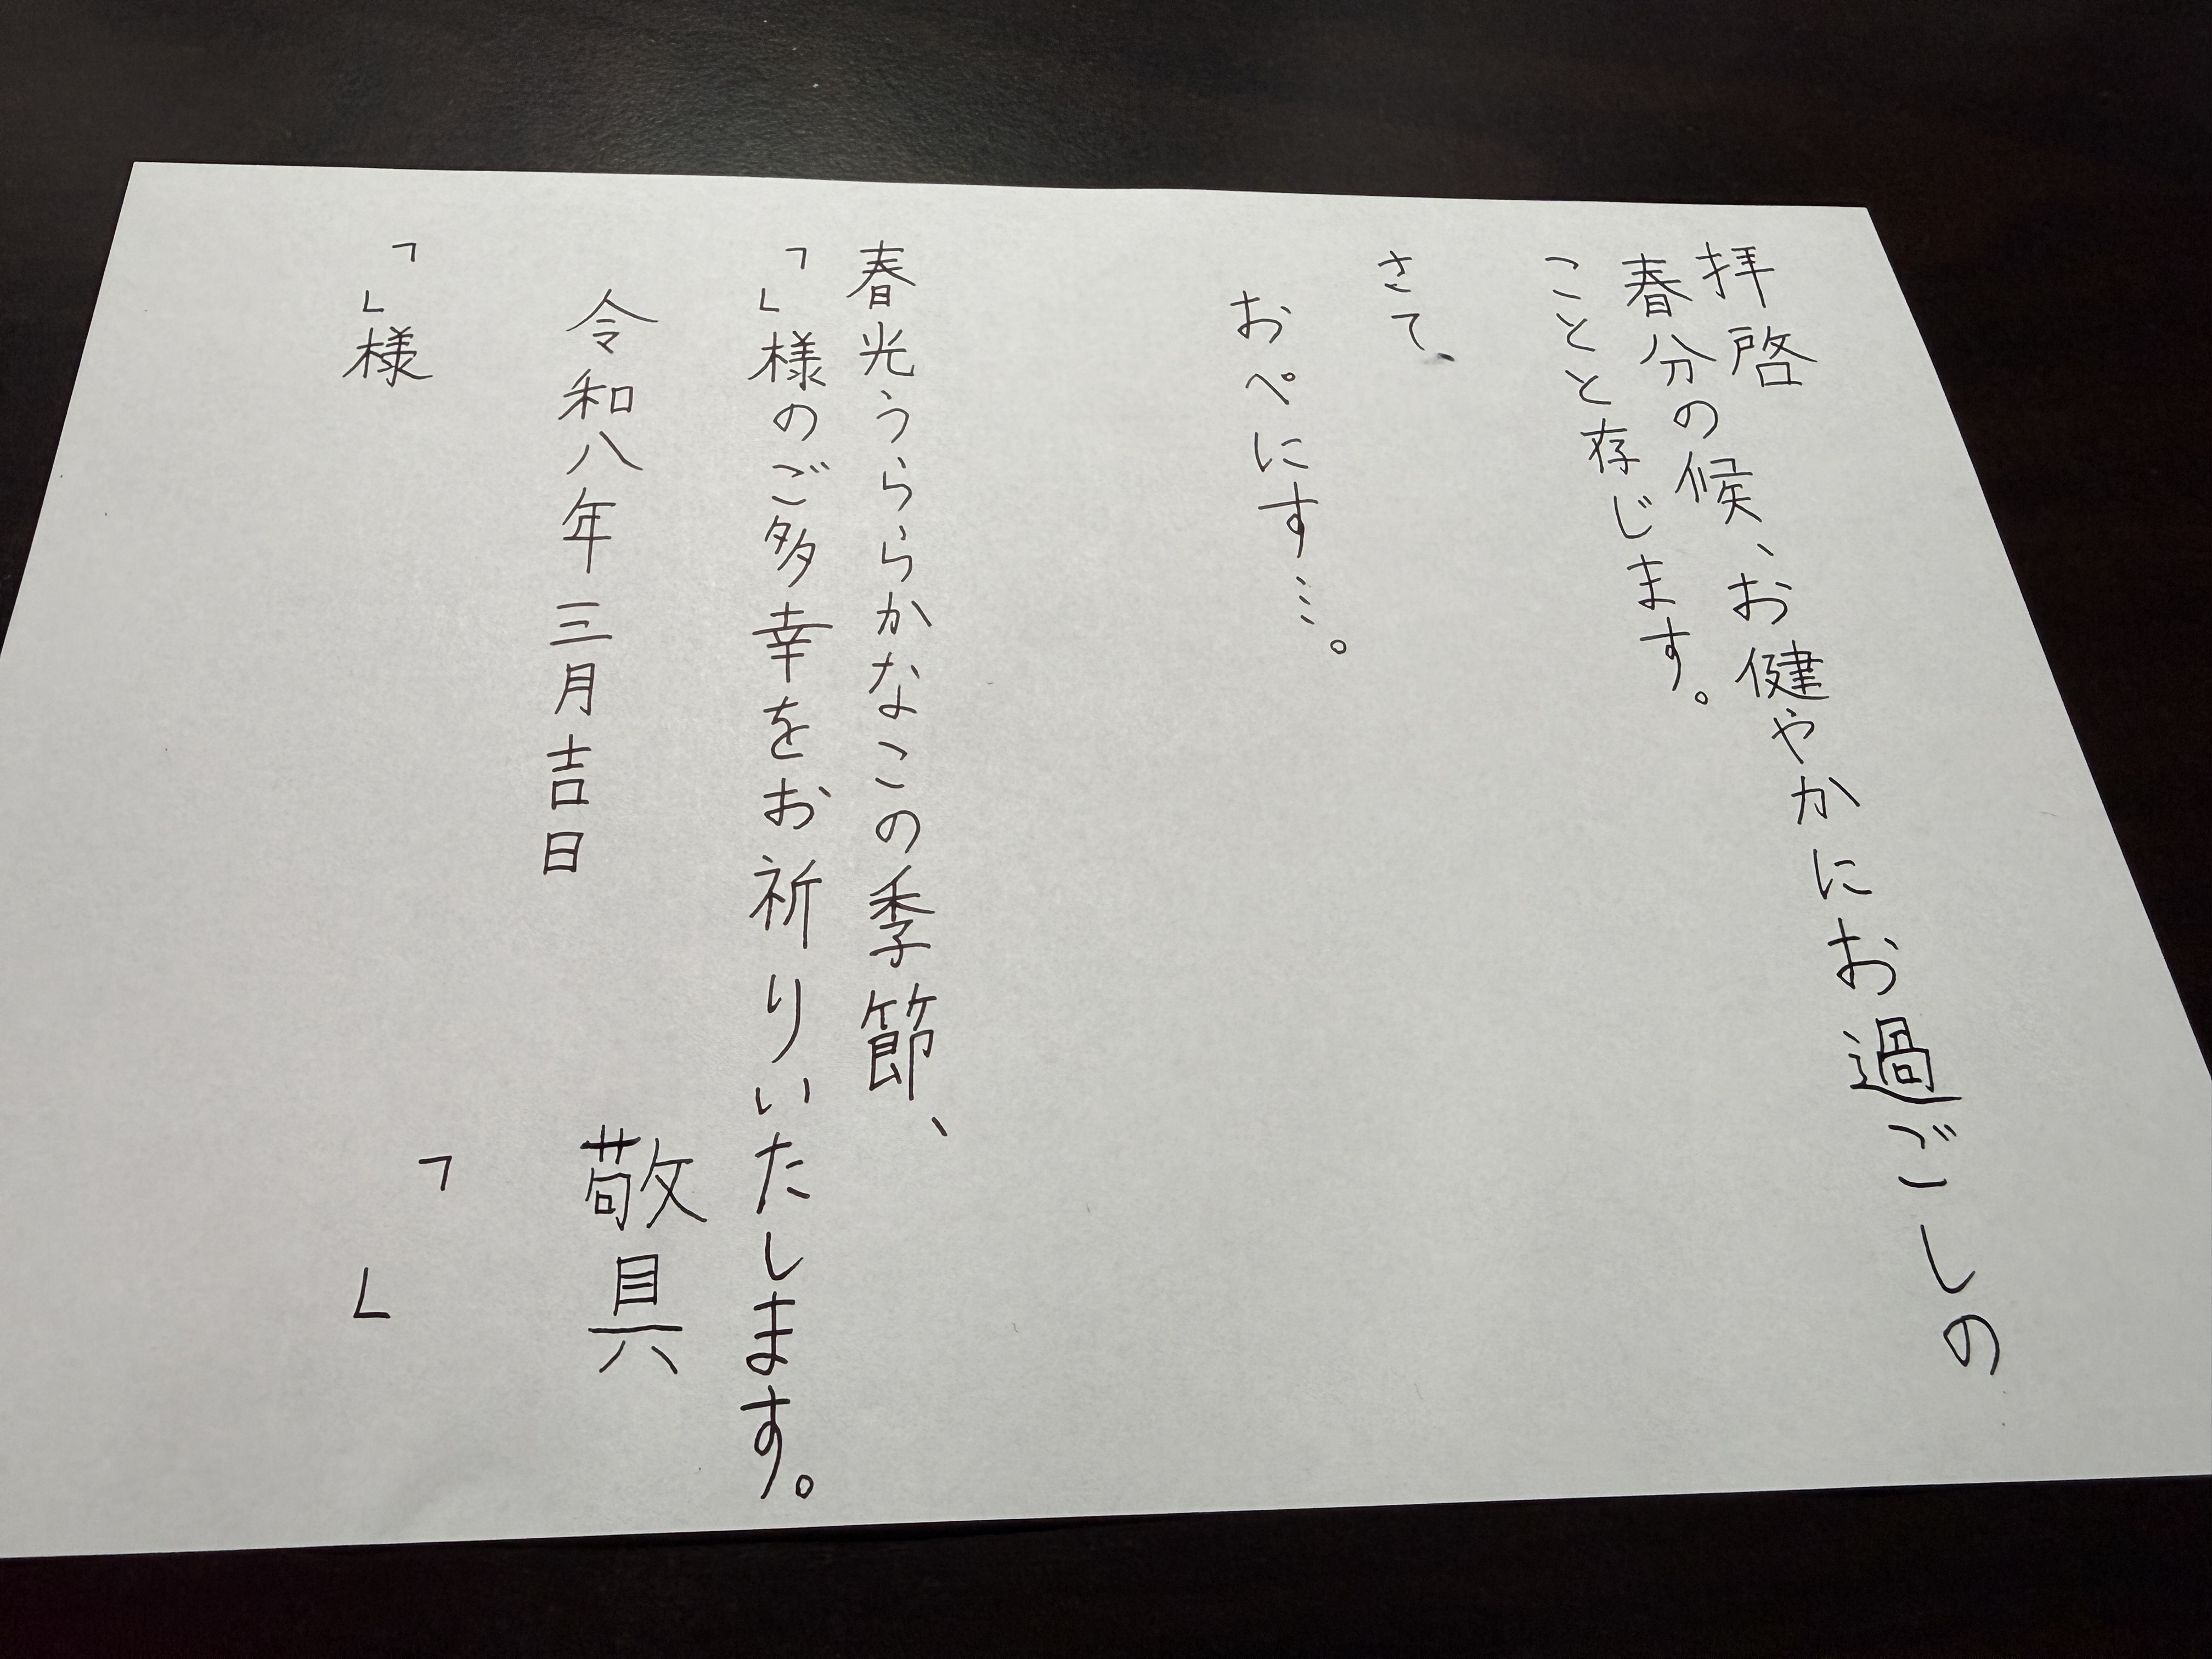 拝啓
春分の候、お健やかにお過ごしの
ことと存じます。
さて、
おぺにす…。
春光うららかなこの季節、
「」様のご多幸をお祈りいたします。
敬具
令和八年三月吉日
「」
「」様